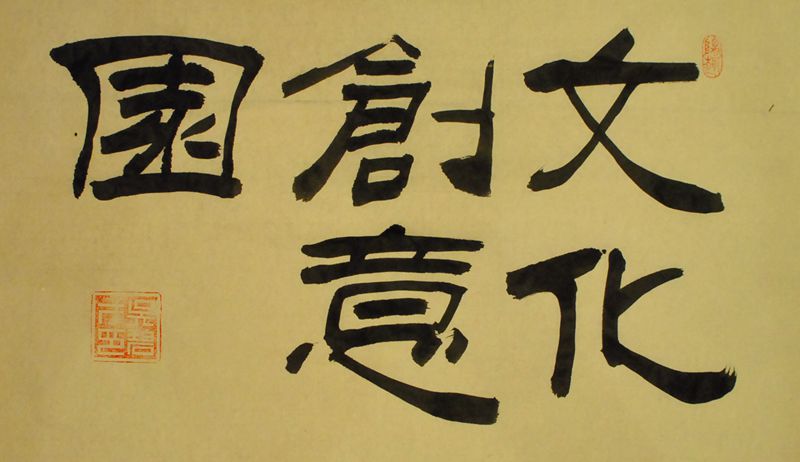 文化
創意
園